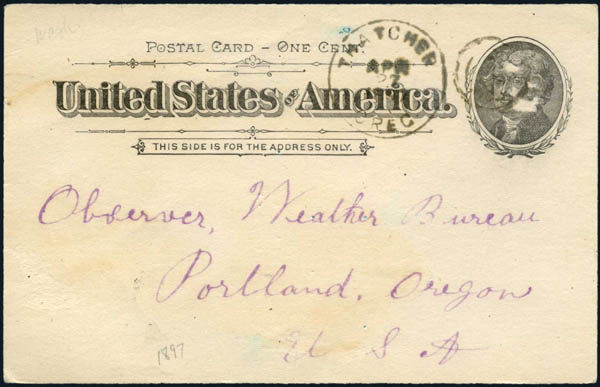 Wash
POSTAL CARD – ONE CENT.
United States of America.
THIS SIDE IS FOR THE ADDRESS ONLY.
THATCHER
APR
27
OREG
Observer, Weather Bureau
Portland, Oregon
U S A
1897